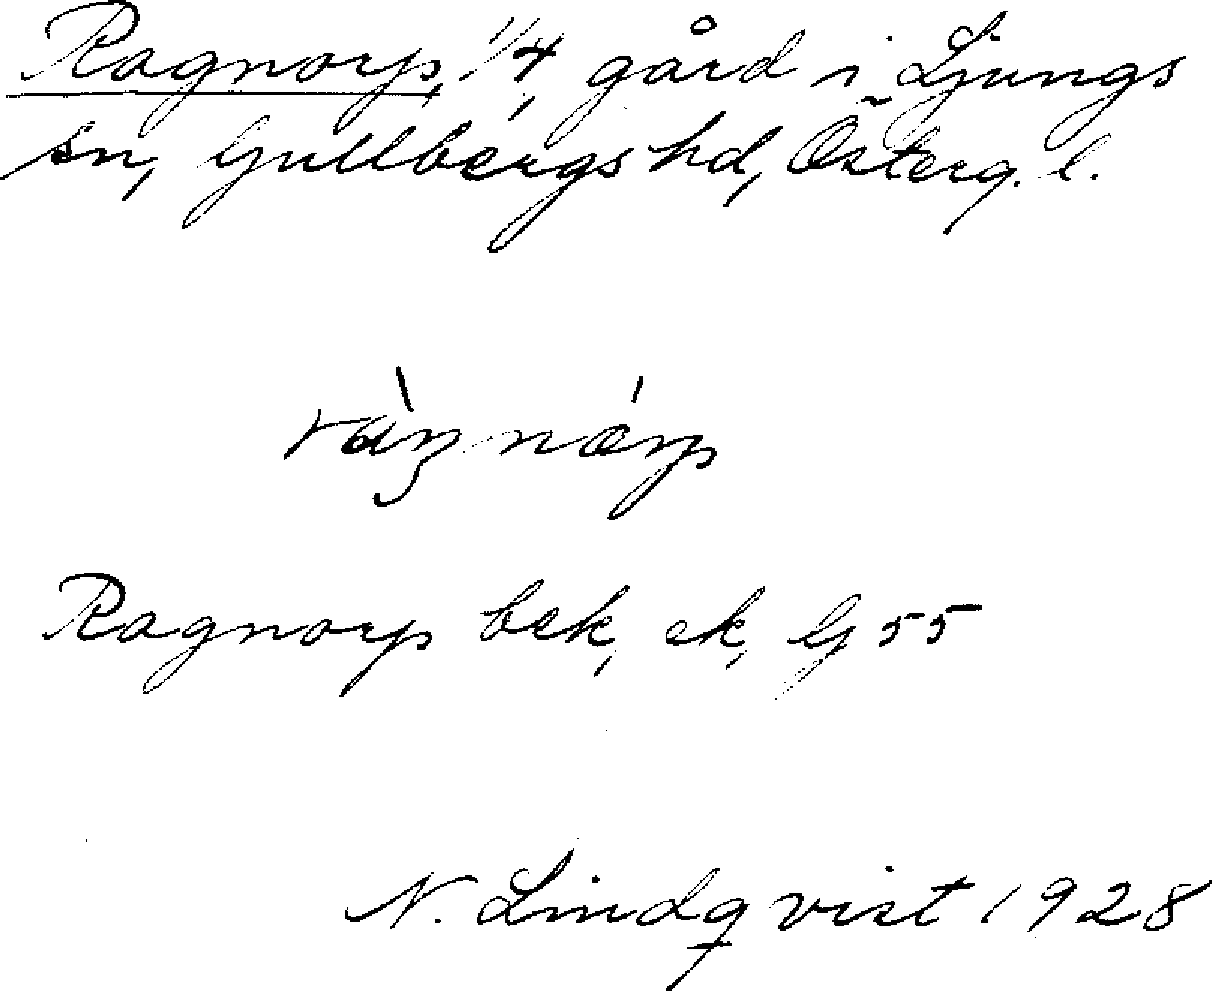 Ragnorp, 1/4, gård i Ljungs
sn, Gullbergs hd, Österg. l.
ràŋnǿrp
Ragnorp bek, ek, G 55
N. Lindqvist 1928